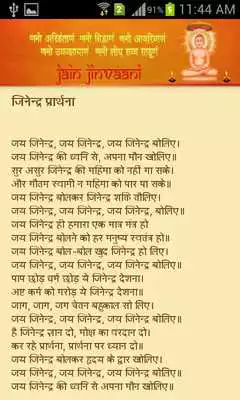 91% 2 11:44 AM
णमो अरिहंताणं णमो सिद्धाणं णमो आयरियाणं
णमो उवज्झायाणं णमो लोए सव्व साहूणं
jain jinvaani
जिनेन्द्र प्रार्थना
जय जिनेन्द्र, जय जिनेन्द्र, जय जिनेन्द्र बोलिए।
जय जिनेन्द्र की ध्वनि से, अपना मौन खोलिए॥
सुर असुर जिनेन्द्र की महिमा को नहीं गा सके।
और गौतम स्वामी न महिमा को पार पा सके॥
जय जिनेन्द्र बोलकर जिनेन्द्र शक्ति तौलिए।
जय जिनेन्द्र, जय जिनेन्द्र, जय जिनेन्द्र, बोलिए॥
जय जिनेन्द्र ही हमारा एक मात्र मंत्र हो
जय जिनेन्द्र बोलने को हर मनुष्य स्वतंत्र हो॥
जय जिनेन्द्र बोल-बोल खुद जिनेन्द्र हो लिए।
जय जिनेन्द्र, जय जिनेन्द्र, जय जिनेन्द्र बोलिए॥
पाप छोड़ धर्म छोड़ ये जिनेन्द्र देशना।
अष्ट कर्म को मरोड़ ये जिनेन्द्र देशना॥
जाग, जाग, जग चेतन बहुकाल सो लिए।
जय जिनेन्द्र, जय जिनेन्द्र, जय जिनेन्द्र बोलिए॥
है जिनेन्द्र ज्ञान दो, मोक्ष का वरदान दो।
कर रहे प्रार्थना, प्रार्थना पर ध्यान दो॥
जय जिनेन्द्र बोलकर हृदय के द्वार खोलिए।
जय जिनेन्द्र, जय जिनेन्द्र, जय जिनेन्द्र बोलिए॥
जय जिनेन्द्र की ध्वनि से अपना मौन खोलिए॥